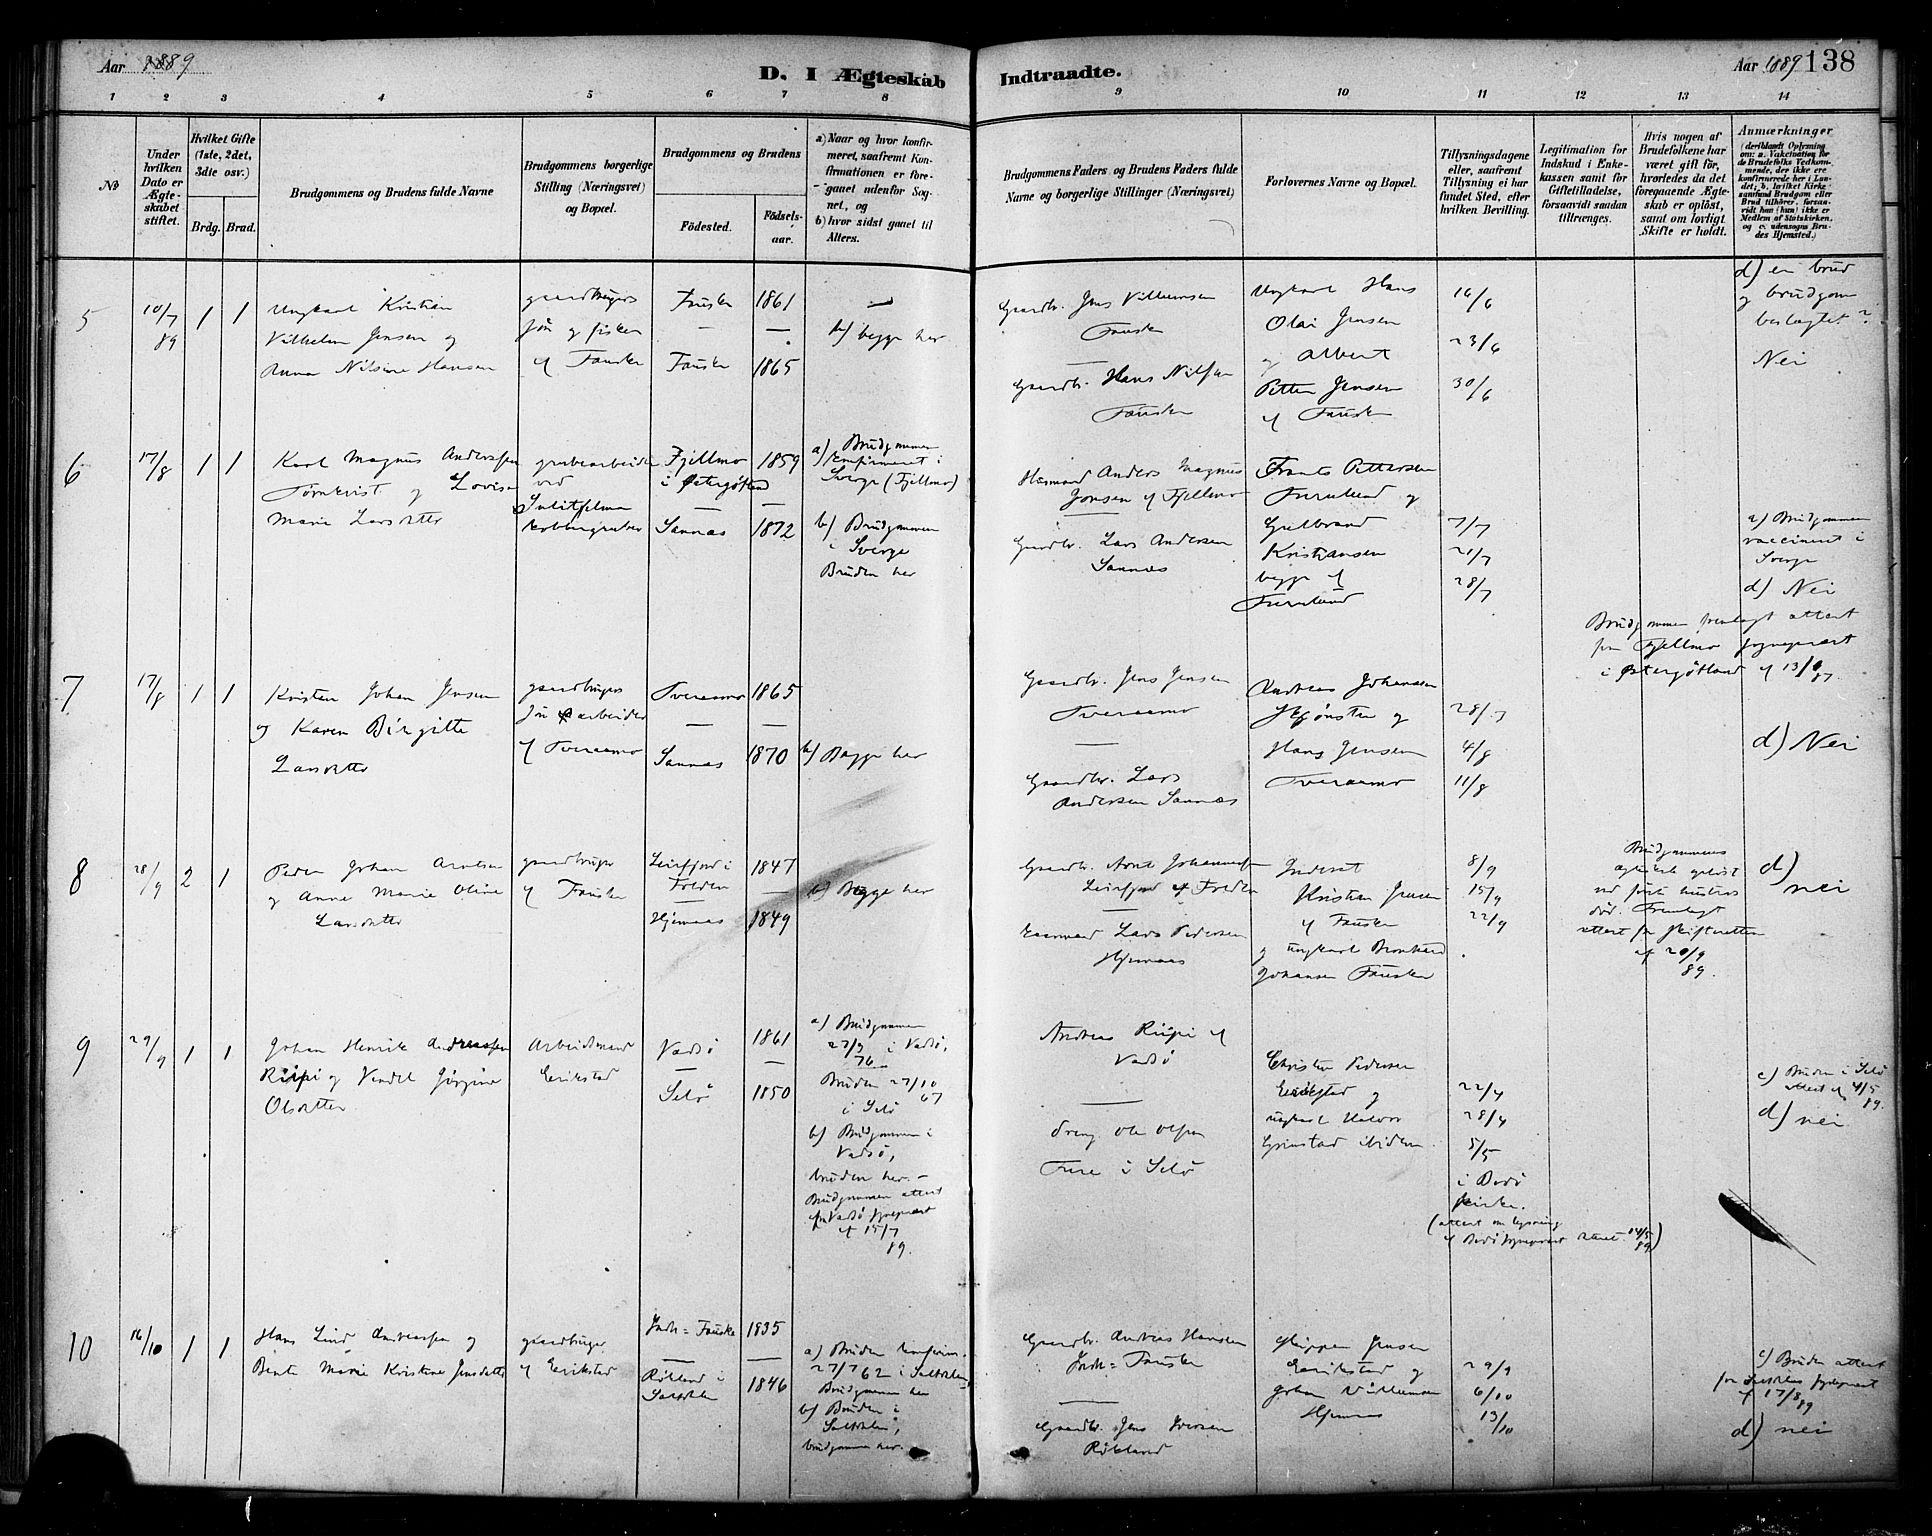 Aar 1889
D. I Ægteskab
Indtraadte.
Aar 1889 138
1 2 3 4 5 6 7 8 9 10 11 12 13 14
No
Under hvilken Dato er Ægteskabet stiftet.
Hvilket Gifte (1ste, 2det, 3die osv.)
Brdg. Brud.
Brudgommens og Brudens fulde Navne
Brudgommens borgerlige Stilling (Næringsvei) og Bopæl.
Brudgommens og Brudens
Födested.
Födselsaar.
a) Naar og hvor konfirmeret, saafremt Konfirmationen er foregaaet udenfor Sognet, og
b) hvor sidst gaaet til Alters.
Brudgommens Faders og Brudens Faders fulde Navne og borgerlige Stillinger (Næringsvei)
Forlovernes Navne og Bopæl.
Tillysningsdagene eller, saafremt Tillysning ei har fundet Sted, efter hvilken Bevilling.
Legitimation for Indskud i Enkekassen samt for Giftetilladelse, forsaavidt saadan tiltrænges.
Hvis nogen af Brudefolkene har været gift för, hvorledes da det foregaaende Ægteskab er oplöst, samt om lovligt Skifte er holdt.
Anmærkninger
(deriblandt Oplysning om: a. Vakcination for de Brudefolks Vedkommende, der ikke ere konfirmerede her i Landet, b. hvilket Kirkesamfund Brudgom eller Brud tilhörer, forsaavidt han (hun) ikke er Medlem af Statskirken, og c. udensogns Brudes Hjemsted.)
5
10/7 89
1 1
Ungkarl Kristian
Vilhelm Jensen og
Anna Nilsine Hansen
gaardbrugers
sön og fisker
af Fauske
Fauske 1861
Fauske 1865
b) begge her
Gaardbr. Jens Vilhelmsen
Fauske
Gaardbr. Hans Nilsen
Fauske
Ungkarl Hans
Olai Jensen
og Albert
Petter Jensen
af Fauske
16/6
23/6
30/6
d) er brud
og brudgom
beslægtet?
Nei
6
17/8
1 1
Karl Magnus Anderssen
Törnkvist og Lovise
Marie Larsdatter
grubearbeider
ved
Sulitjelma
kobbergruber
Fjellmo 1859
i Østergötland
Sannæs 1872
a) Brudgommen
konfirmeret i
Sverge (Fjellmo)
b) Brudgommen
i Sverge
Bruden her
Husmand Anders Magnus
Jonsen af Fjellmo
Gaardbr. Lars Andersen
Sannæs
Frants Pettersen
Furulund og
Gulbrand
Kristiansen
begge af
Furulund
7/7
21/7
28/7
a) Brudgommen
vaccineret i
Sverge
d) Nei
Brudgommen fremlagt attest
fra Fjellmo sogneprest
i Østergötland af 13/9 87.
7
17/8
1 1
Kristen Johan Jensen
og Karen Birgitte
Larsdatter
gaardbrugers
sön & arbeider
af Tveraamo
Tveraamo 1865
Sannæs 1870
b) Begge her
Gaardbr. Jens Jensen
Tveraamo
Gaardbr. Lars
Andersen Sannæs
Andreas Johansen
Skjönsta og
Hans Jensen
Tveraamo
28/7
4/8
11/8
d) Nei
8
28/9
2 1
Peder Johan Arntsen
og Anne Marie Oline
Larsdatter
gaardbruger
af Fauske
Leirfjord i 1847
Folden
Hjemaas 1849
b) Begge her
Gaardbr. Arnt Johannes
Leirfjord af Folden
Lars Pedersen
Hjemaas
Inderst
Kristian Jensen
af Fauske
og ungkarl
Johansen Fauske
8/9
15/9
22/9
Brudgommens
ægteskab oplöst
ved förste hustrus
död. Fremlagt
attest fra skifteretten
af 20/9 89.
d)
nei
9
29/9
1 1
Johan Henrik Andreassen
Riipi og Vendel Jörgine
Olsdatter
Arbeidsmand
Erikstad
Vadsö 1861
Selö 1850
a) Brudgommen
27/9 76 i Vadsö,
Bruden 27/10 67
i Selö
b) Brudgommen i
Vadsö,
bruden her. –
Brudgommen attest
fra Vadsö sogneprest
af 15/7
89.
Andreas Riipi af
Vadsö
dreng Ole Olsen
Ture i Selö
Christen Pedersen
Erikstad og
ungkarl Halvor
Grimstad ibidem.
22/4
28/4
5/5
i Bodö
kirke.
(attest om lysning
af Bodö sogneprest dateret 14/5 89)
c) Bruden i Selö
attest af 4/5
89.
d) nei
10
16/10
1 1
Hans Lind Andreassen og
Bente Marie Kristine Jensdatter
gaardbruger
af Erikstad
Indh=Fauske 1835
Rökland i 1846
Saltdalen
a) Bruden konfirm.
27/7 62 i Saltdalen
Brudgommen her
b) Bruden i
Saltdalen,
brudgommen her.
Gaardbr. Andreas Hansen
Indh=Fauske
Gaardbr. Jens Iversen
Rökland
Skipper Jensen
Erikstad og
Johan Villumsen
Hjemaas
29/9
6/10
13/10
c) Bruden attest
fra Saltdalens sogneprest
af 17/8 89
d) nei